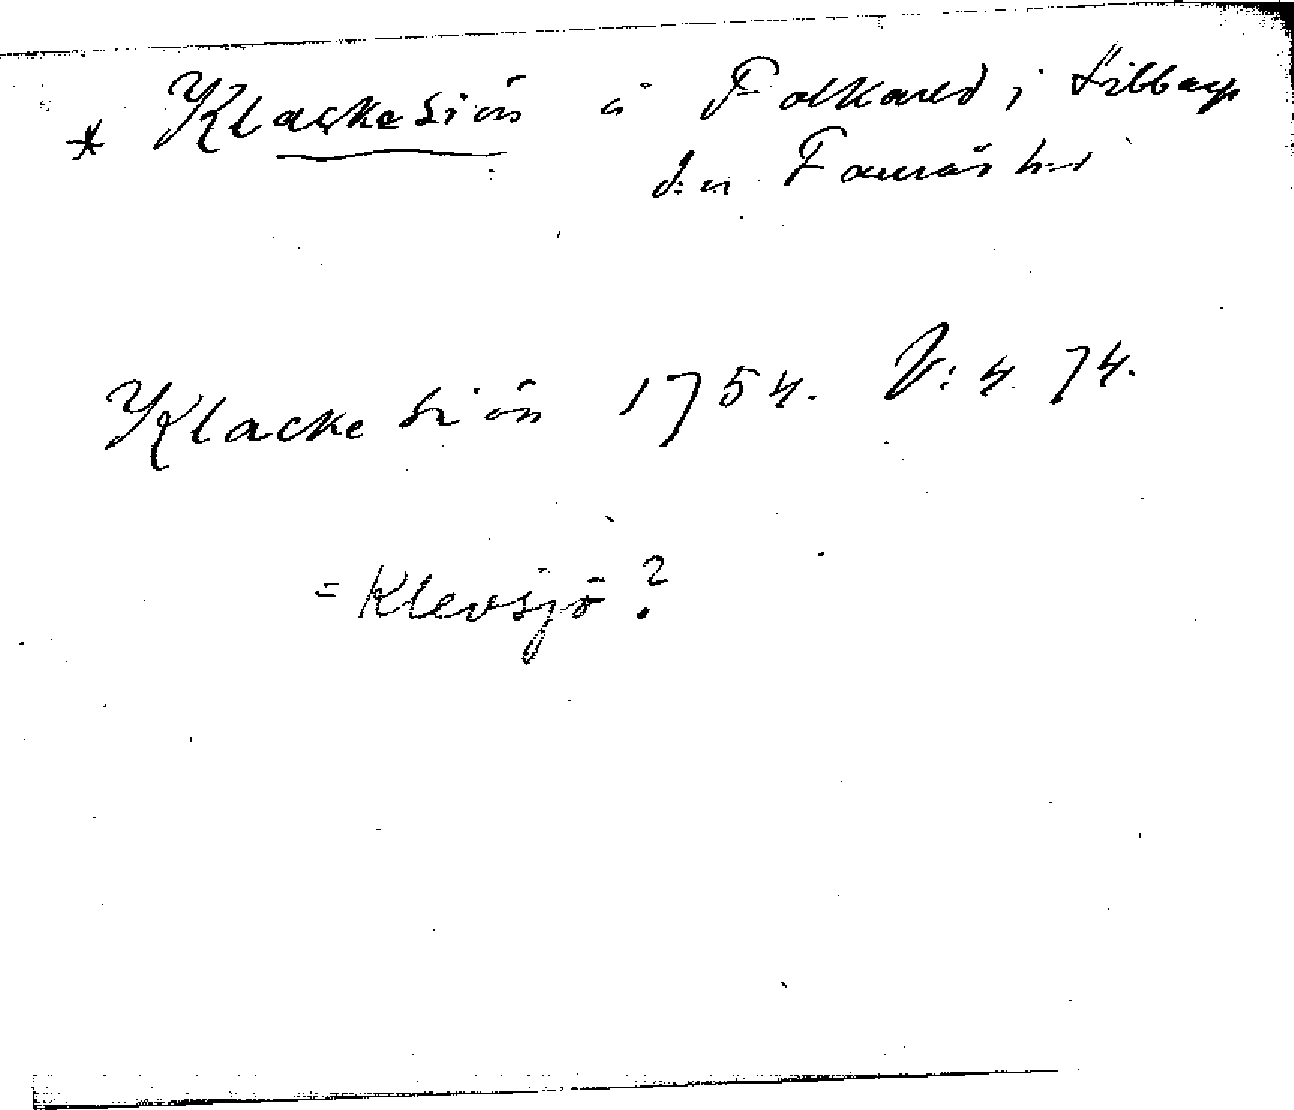 * Klackesiön å Folkared i Sibbarp
s:n Faurås hd
Klackesiön 1754. V: 4 74.
= Klevsjö?